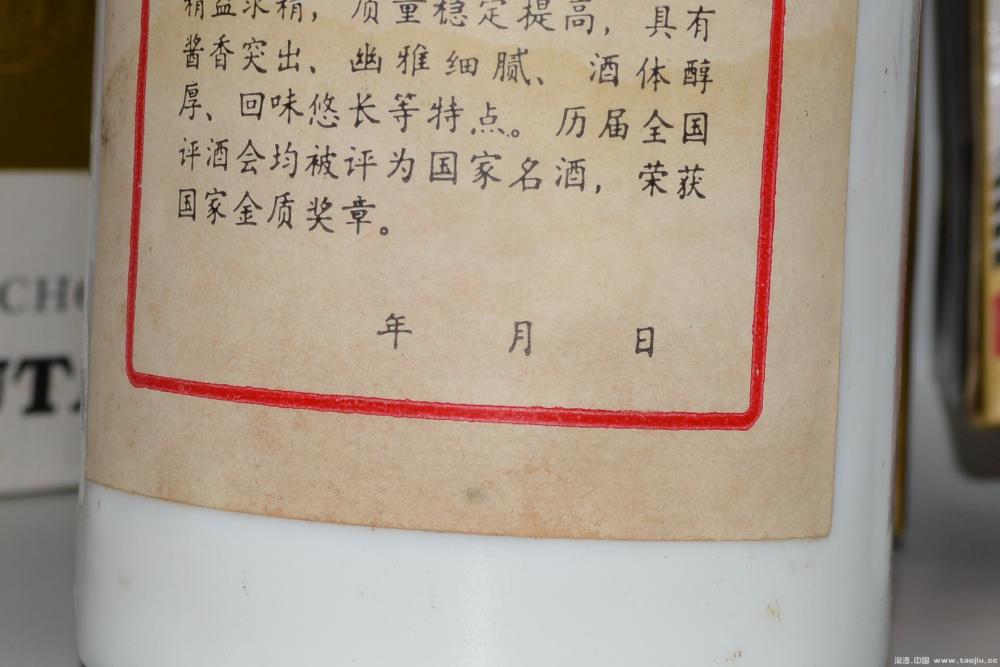 精益求精，质量稳定提高，具有
酱香突出、幽雅细腻、酒体醇
厚、回味悠长等特点。历届全国
评酒会均被评为国家名酒，荣获
国家金质奖章。
年 月 日
CHO
UTA
淘酒.中国 www.taojiu.cc